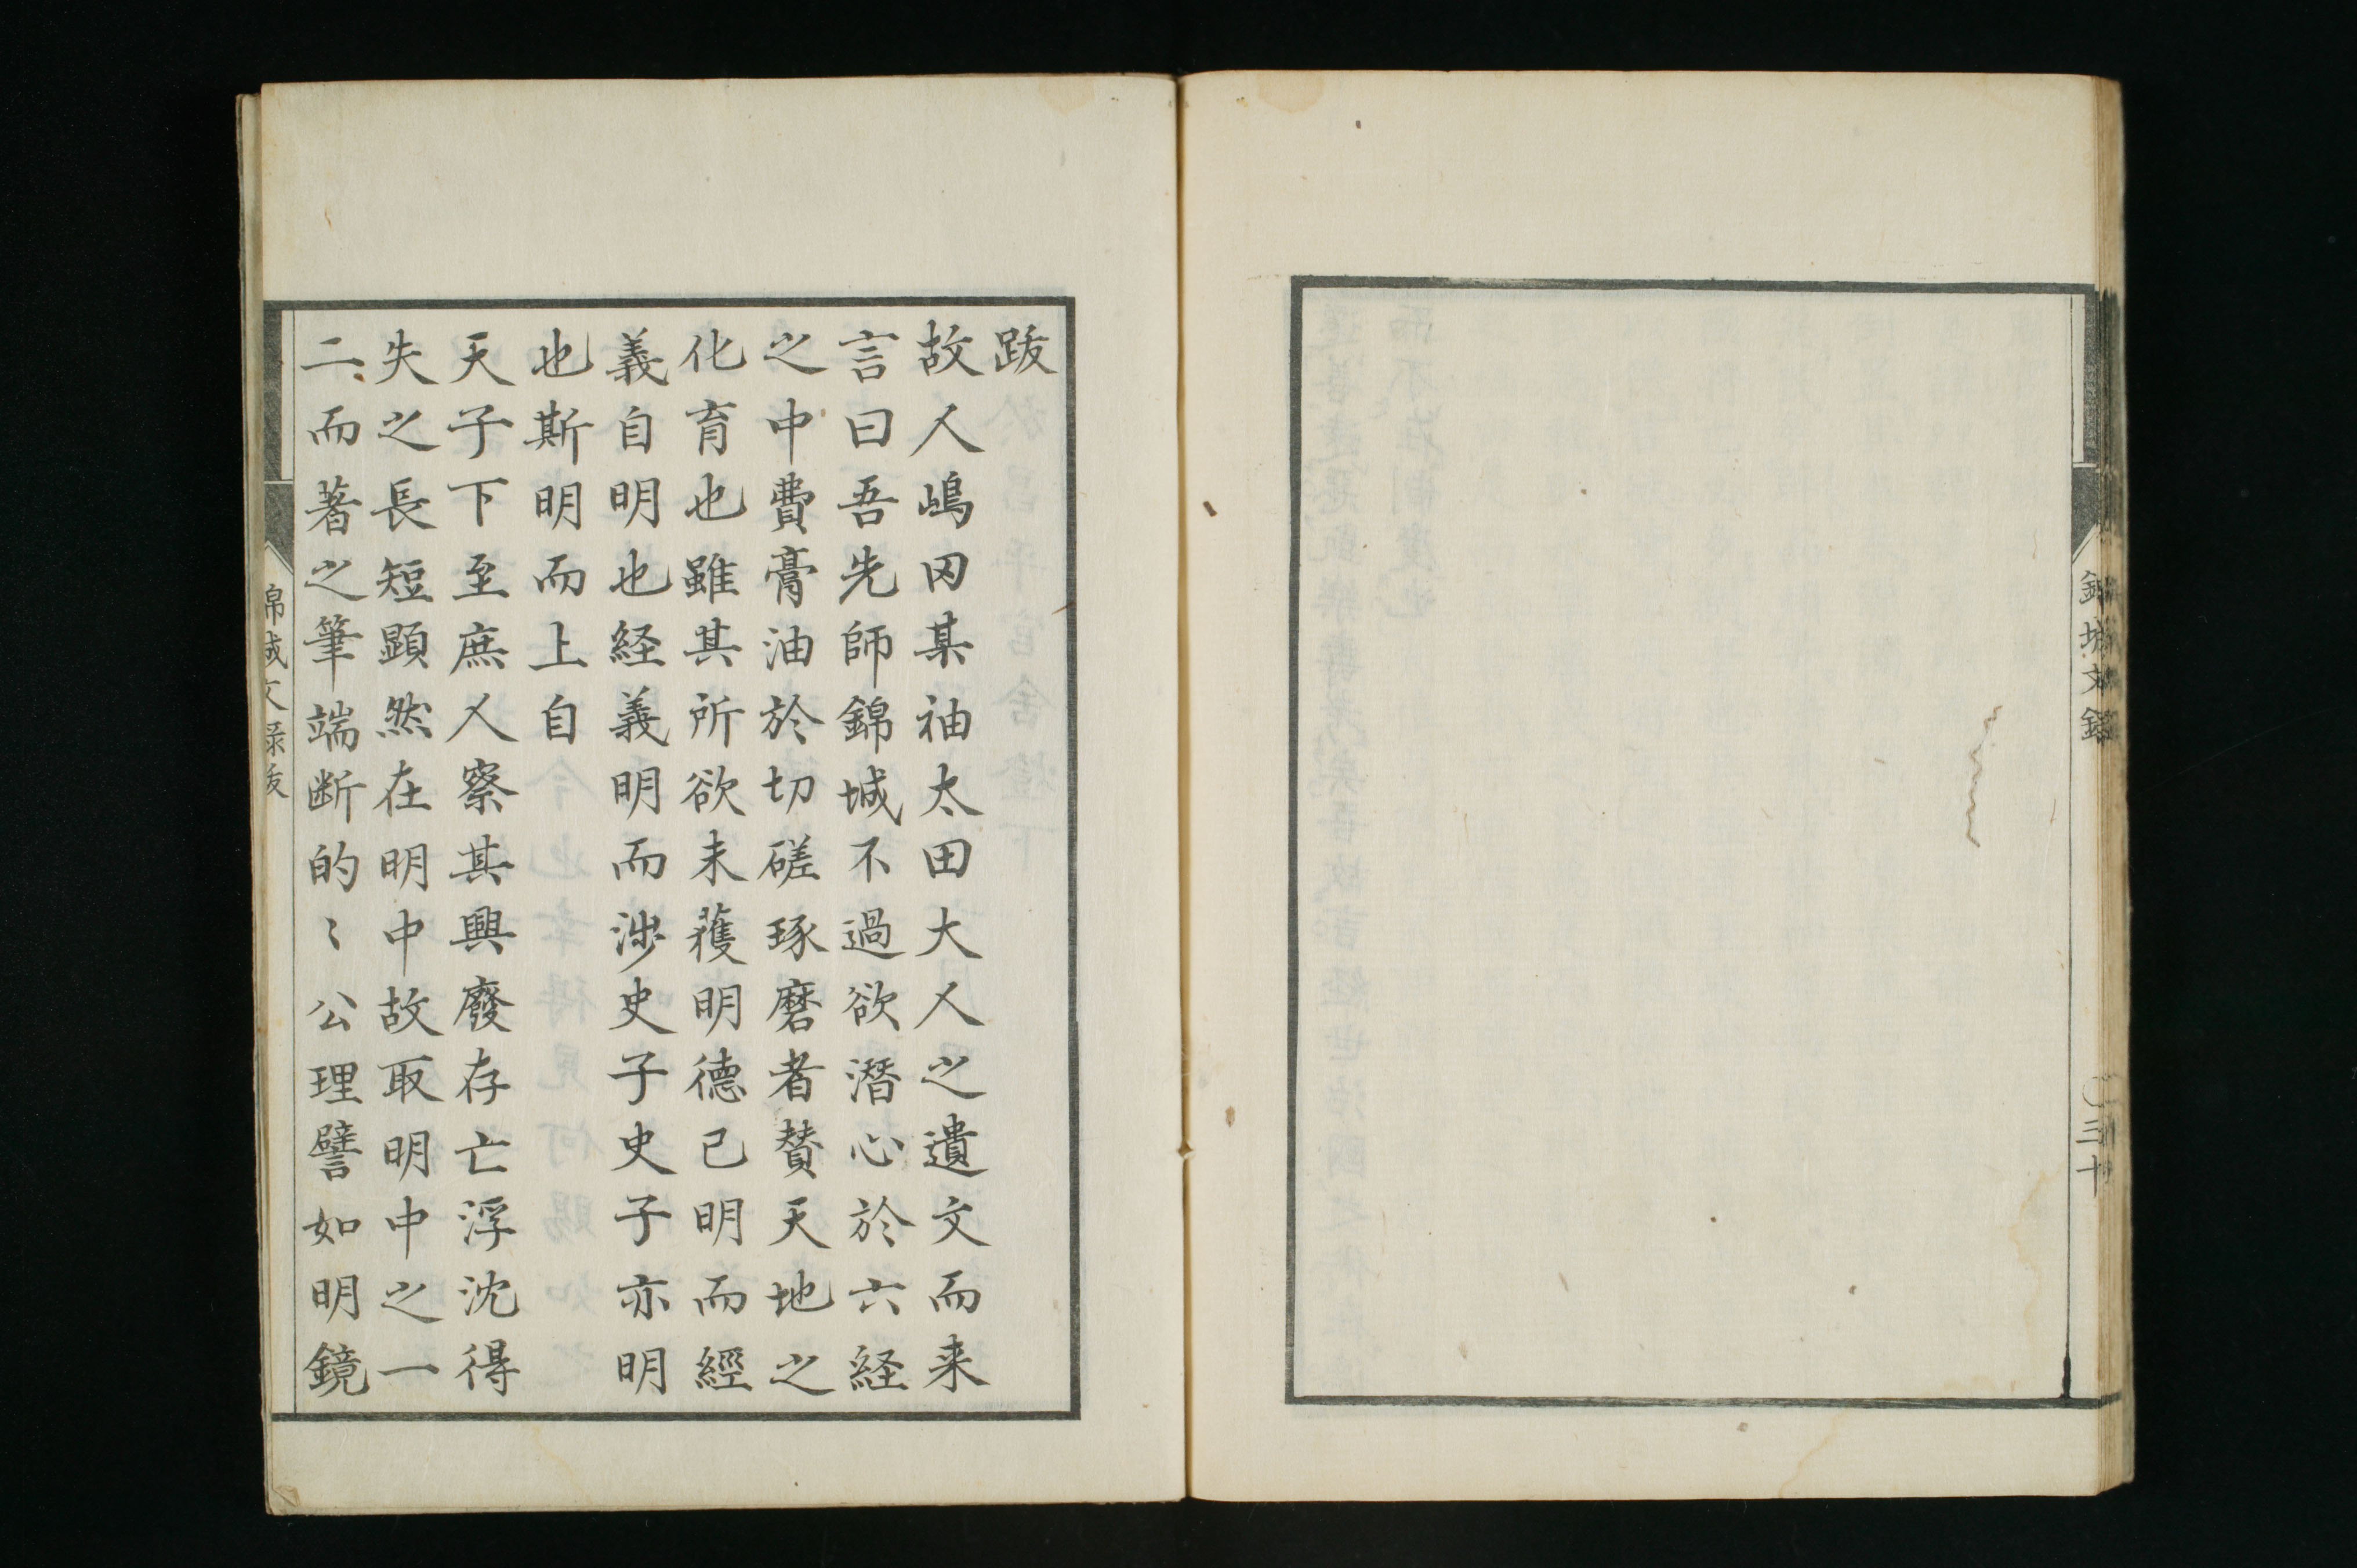 錦城文録
三十
跋
故人嶋岡某袖太田大人之遺文而来
言曰吾先師錦城不過欲潛心於六経
之中費膏油於切磋琢磨者賛天地之
化育也雖其所欲未獲明德已明而經
義自明也経義明而涉史子史子亦明
也斯明而上自
天子下至庶人察其興廢存亡浮沈得
失之長短顕然在明中故取明中之一
二而著之筆端断的〻公理譬如明鏡
錦城文録跋